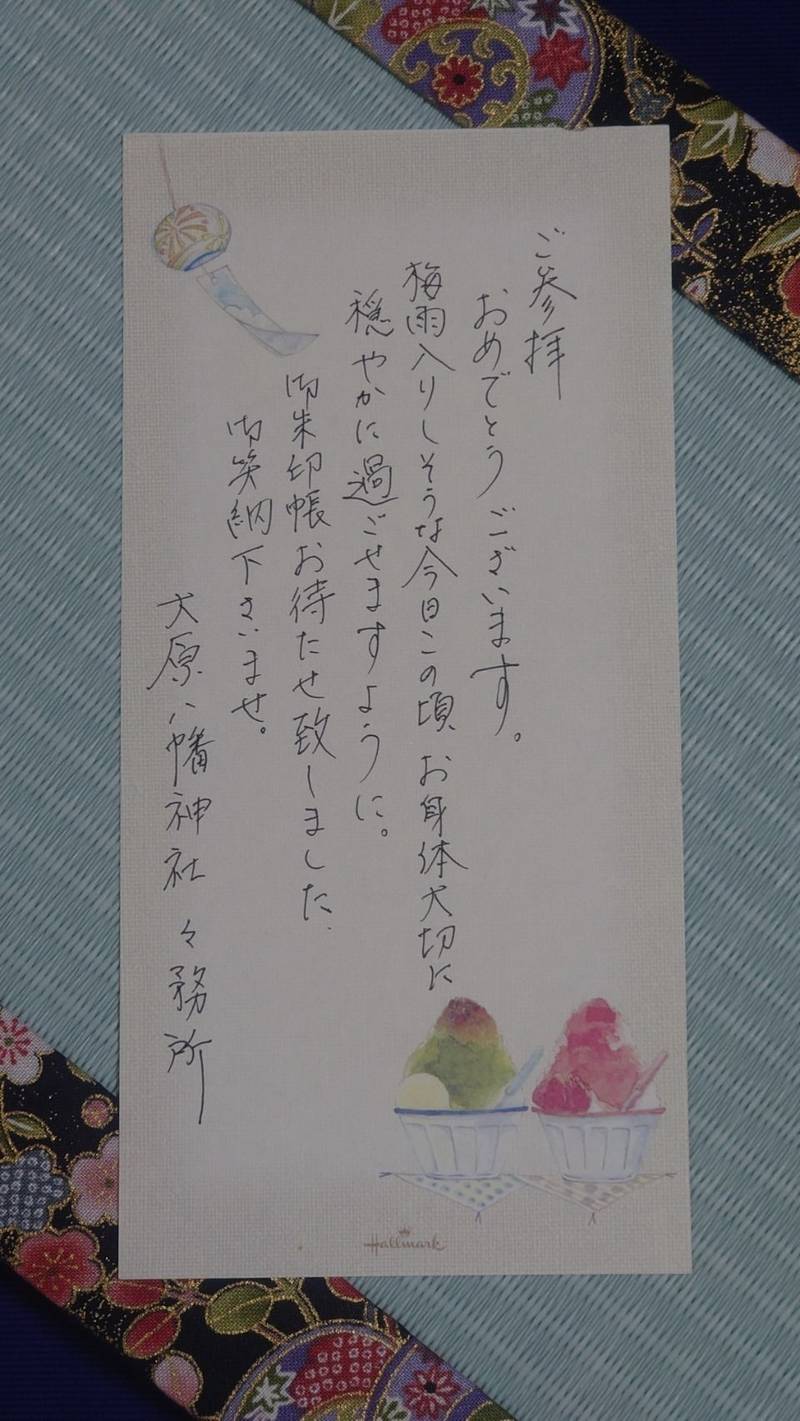 ご参拝
おめでとうございます。
梅雨入りしそうな今日この頃、お身体大切に
穏やかに過ごせますように。
御朱印帳お待たせ致しました。
御笑納下さいませ。
大原八幡神社々務所
Hallmark